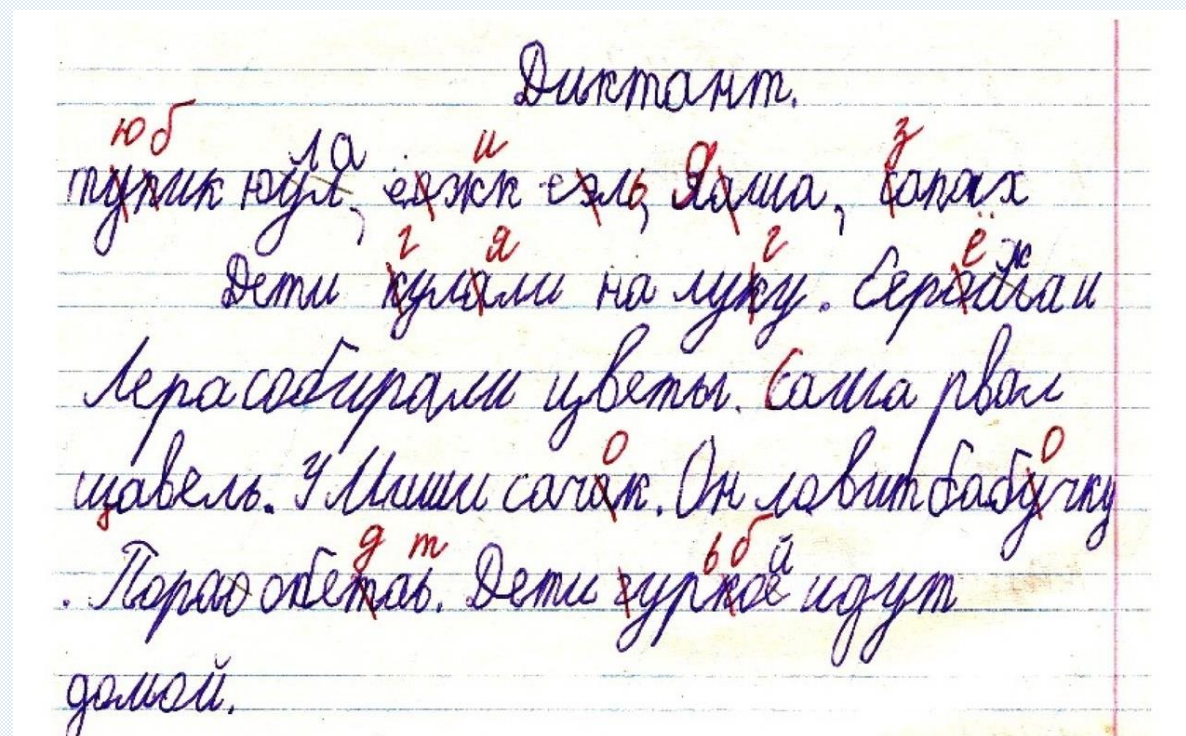 Диктант.
тупик юула, еажк еэль, Яаша, сапах
Дети кулали на луку. Серойжа и
Лера собирали цветы. Саша рвал
щавель. У Миши сачак. Он ловит бабучку
. Пора обетаь. Дети гуркой идут
домой.